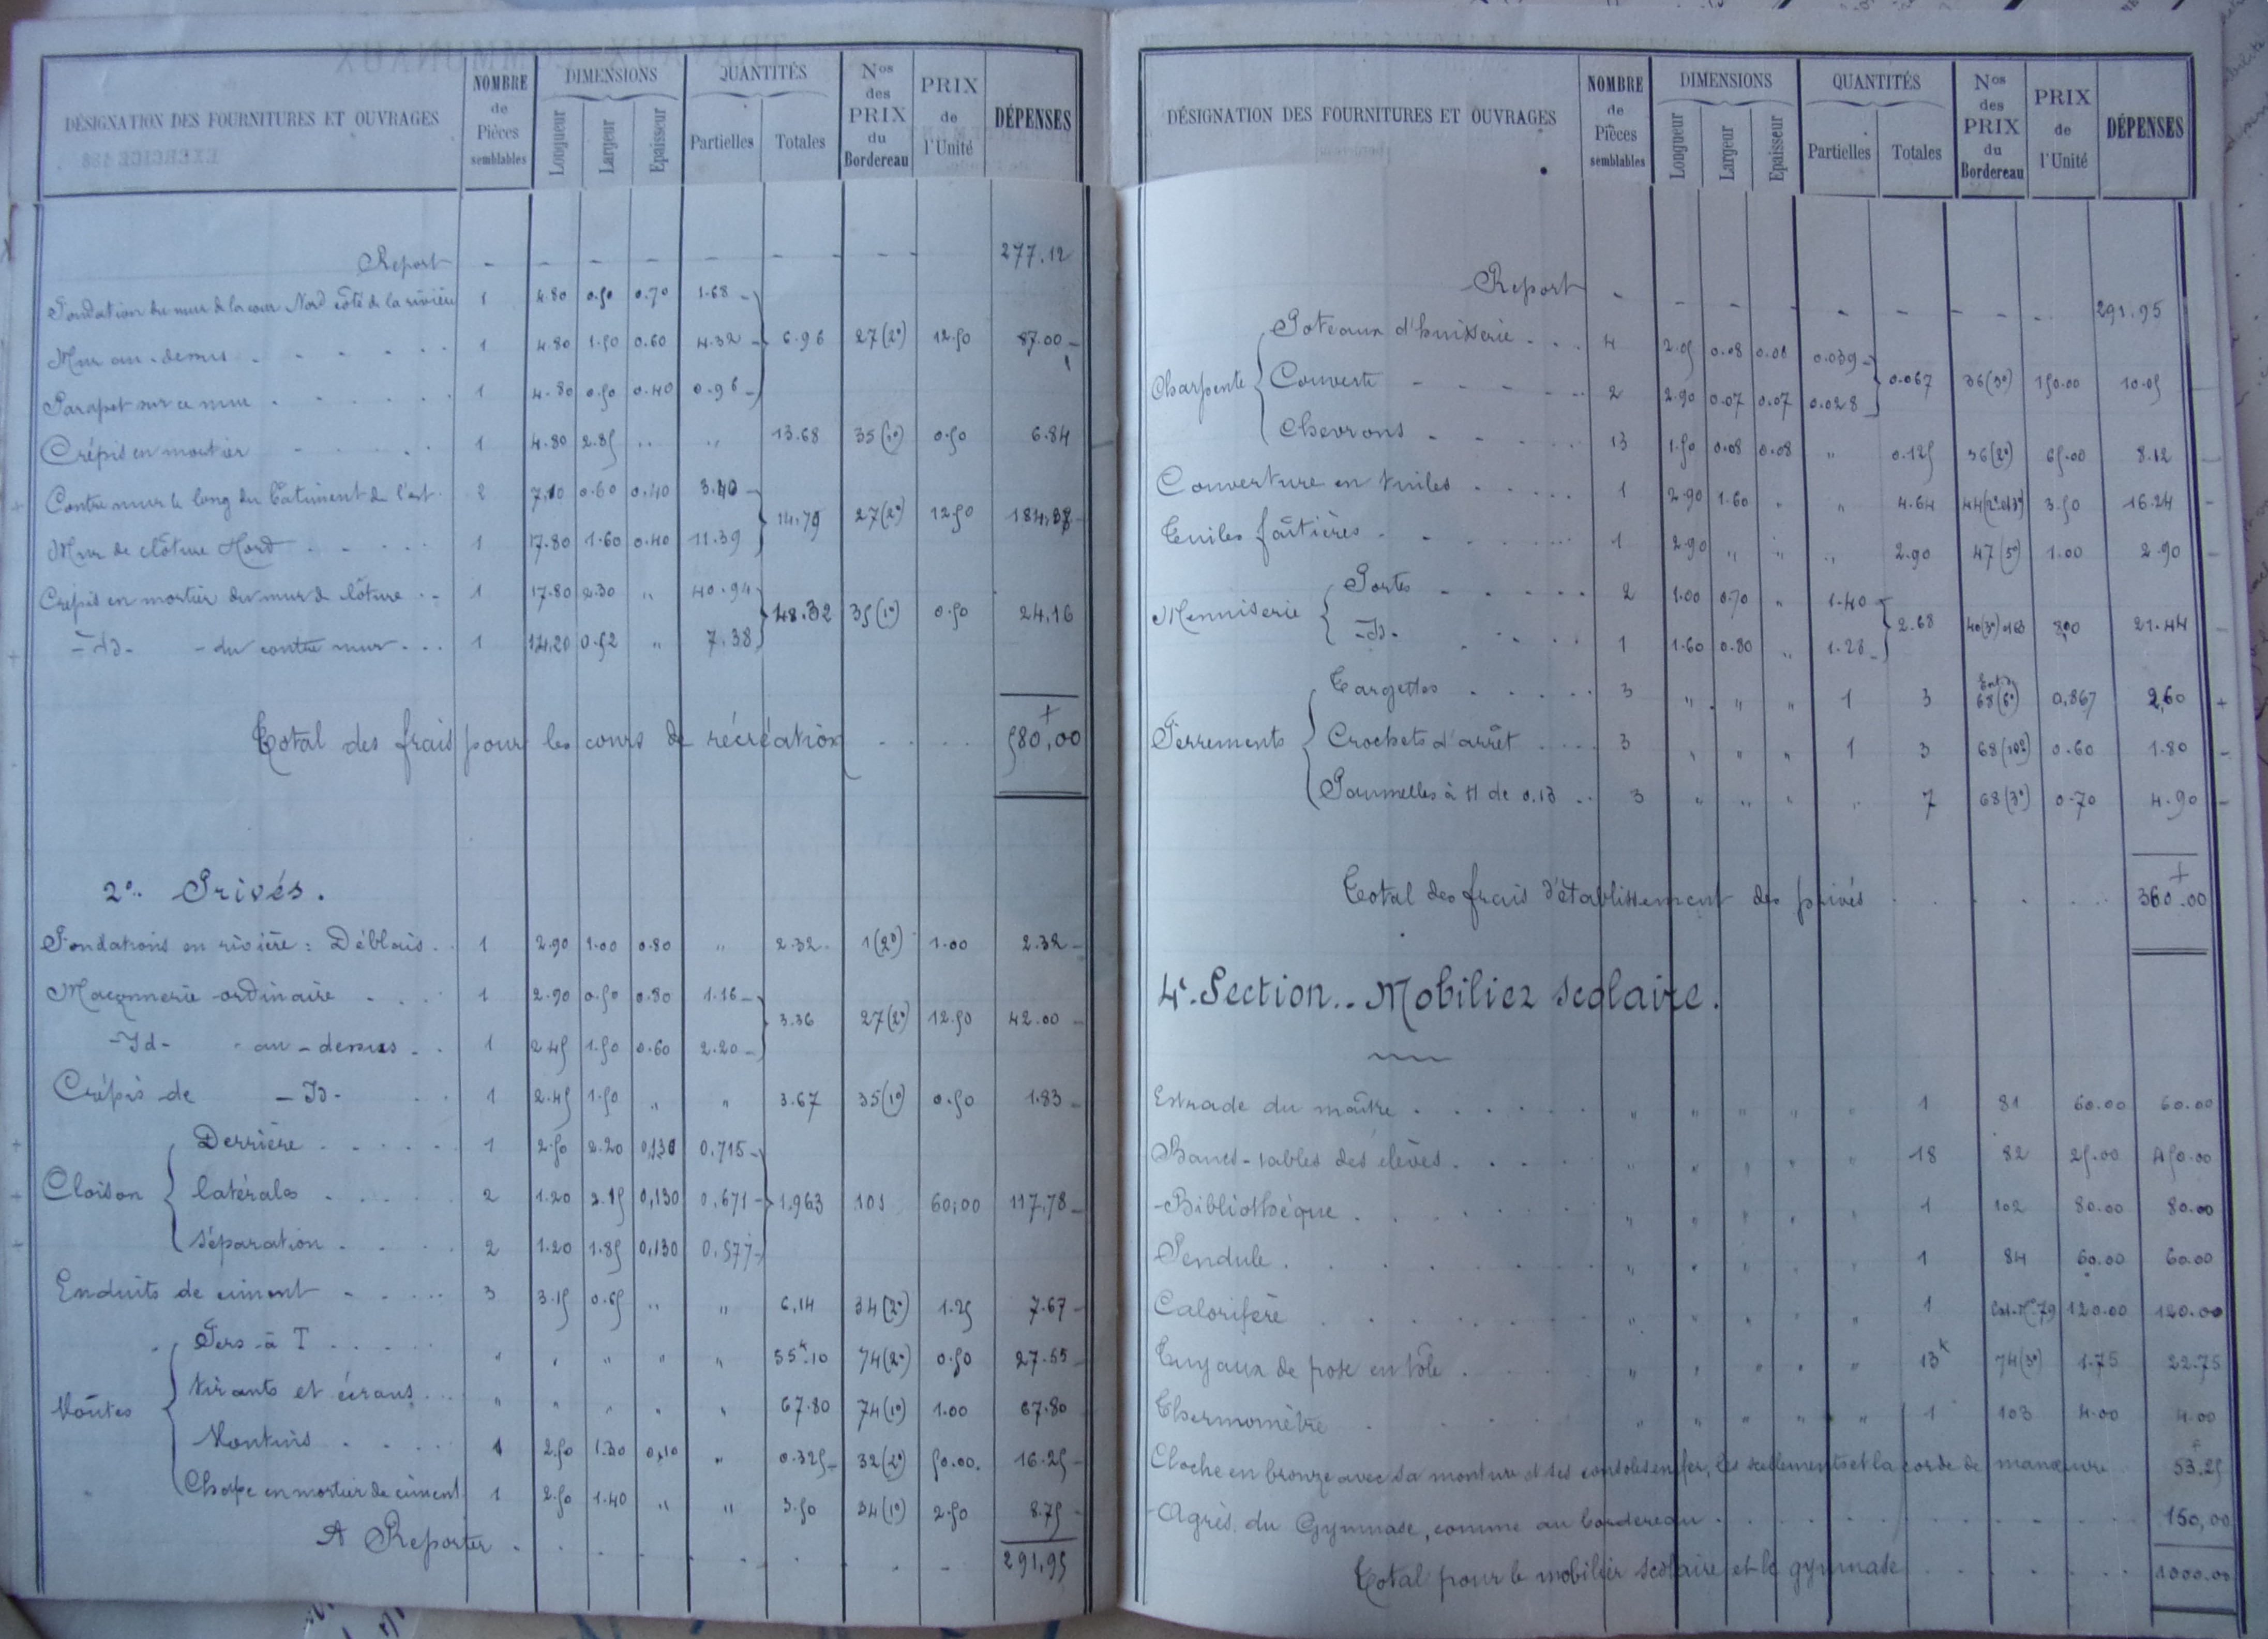 DÉSIGNATION DES FOURNITURES ET OUVRAGES NOMBRE de Pièces semblables DIMENSIONS Longueur Largeur Epaisseur QUANTITÉS Partielles Totales Nos des PRIX du Bordereau PRIX de l'Unité DÉPENSES
Report - - - - - - - - 277.12
Fondation du mur de la cour Nord côté de la rivière 1 4.80 0.50 0.70 1.68
Mur au-dessus 1 4.80 1.50 0.60 4.32 6.96 27(2°) 12.50 87.00
Parapet sur ce mur 1 4.80 0.50 0.40 0.96
Crépis en mortier 1 4.80 2.85 " " 13.68 35(1°) 0.50 6.84
Contre mur le long du bâtiment de l'est 2 7,10 0.60 0.40 3.40
14,79 27(2°) 12.50 184,88
Mur de clôture Nord 1 17.80 1.60 0.40 11.39
Crépis en mortier du mur de clôture 1 17.80 2.30 " 40.94
48.32 35(1°) 0.50 24,16
-Id- - du contre mur 1 14,20 0.52 " 7.38
Total des frais pour les cours de récréation 580,00
2°. Privés.
Fondations en rivière : Déblais 1 2.90 1.00 0.80 " 2.32 1(2°) 1.00 2.32
Maçonnerie ordinaire 1 2.90 0.50 0.80 1.16
3.36 27(2°) 12.50 42.00
-Id- - au-dessus 1 2.45 1.50 0.60 2.20
Crépis de -Id- 1 2.45 1.50 " " 3.67 35(1°) 0.50 1.83
Cloison Derrière 1 2.50 2.20 0,130 0,715
latérales 2 1.20 2.15 0,130 0,671 1,963 101 60,00 117,78
séparation 2 1.20 1.85 0,130 0,577
Enduits de ciment 3 3.15 0.65 " " 6,14 34(2°) 1.25 7.67
Voûtes Fers à T " " " " " 55k.10 74(2°) 0.50 27.55
tirants et écrous " " " " " 67.80 74(1°) 1.00 67.80
Voutins 1 2.50 1.30 0,10 " 0.325 32(2°) 50.00. 16.25
Chape en mortier de ciment 1 2.50 1.40 " " 3.50 34(1°) 2.50 8.75
A Reporter 291,95
DÉSIGNATION DES FOURNITURES ET OUVRAGES NOMBRE de Pièces semblables DIMENSIONS Longueur Largeur Epaisseur QUANTITÉS Partielles Totales Nos des PRIX du Bordereau PRIX de l'Unité DÉPENSES
Report - - - - - - - - 291.95
Charpente Poteaux d'huisserie 4 2.05 0.08 0.08 0.039
0.067 36(3°) 150.00 10.05
Couverte 2 2.90 0.07 0.07 0.028
Chevrons 13 1.50 0.08 0.08 " 0.125 36(2°) 65.00 8.12
Couverture en tuiles 1 2.90 1.60 " " 4.64 44(2° et 3°) 3.50 16.24
Tuiles faîtières 1 2.90 " " " 2.90 47(5°) 1.00 2.90
Menuiserie Portes 2 1.00 0.70 " 1.40
2.68 40(3°) 8,00 21.44
-Id- 1 1.60 0.80 " 1.28
Ferrements Targettes 3 " " " 1 3 68(6°) 0,867 2,60
Crochets d'arrêt 3 " " " 1 3 68(10°) 0.60 1.80
Paumelles à H de 0.13 3 " " " " 7 68(3°) 0.70 4.90
Total des frais d'établissement des privés 360.00
4e. Section.. Mobilier scolaire.
Estrade du maître " " " " " 1 81 60.00 60.00
Bancs-tables des élèves " " " " " 18 82 25.00 450.00
Bibliothèque " " " " " 1 102 80.00 80.00
Pendule " " " " " 1 84 60.00 60.00
Calorifère " " " " " 1 79 120.00 120.00
Tuyaux de pose en tôle " " " " " 13k 74(3°) 1.75 22.75
Thermomètre " " " " " 1 103 4.00 4.00
Cloche en bronze avec sa monture et ses consoles en fer, les scellements et la corde de manœuvre 53.25
Agrès du Gymnase, comme au bordereau 150,00
Total pour le mobilier scolaire et le gymnase 1000.00